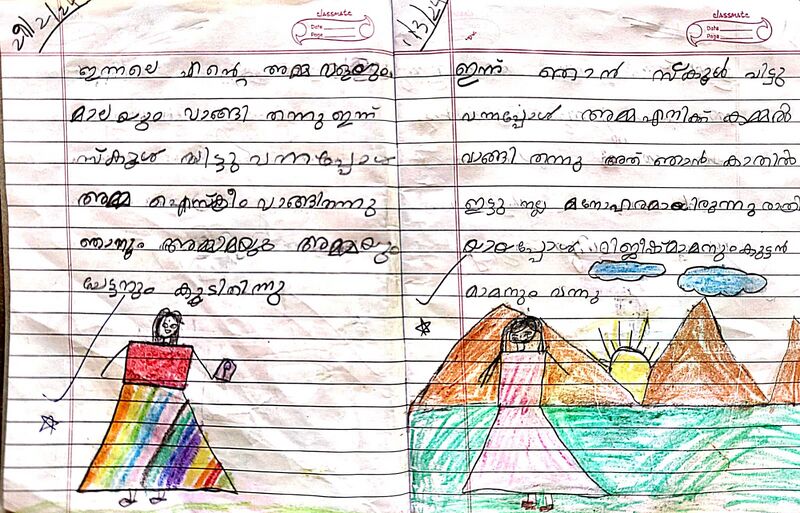 29/2/24
classmate
Date
Page
ഇന്നലെ എന്റെ അമ്മ വളയും
മാലയും വാങ്ങി തന്നു ഇന്ന്
സ്കൂൾ വിട്ടു വന്നപ്പോൾ
അമ്മ ഐസ്ക്രീം വാങ്ങിതന്നു
ഞാനും അമ്മയും
ചേട്ടനും കൂടിതിന്നു
1/3/24
classmate
Date
Page
ഇന്ന് ഞാൻ സ്കൂൾ വിട്ടു
വന്നപ്പോൾ അമ്മ എനിക്ക് കമ്മൽ
വാങ്ങി തന്നു അത് ഞാൻ കാതിൽ
ഇട്ടു നല്ല മനോഹരമായിരുന്നു രാത്രി
യായപ്പോൾ കുട്ടൻ
മാമനും വന്നു